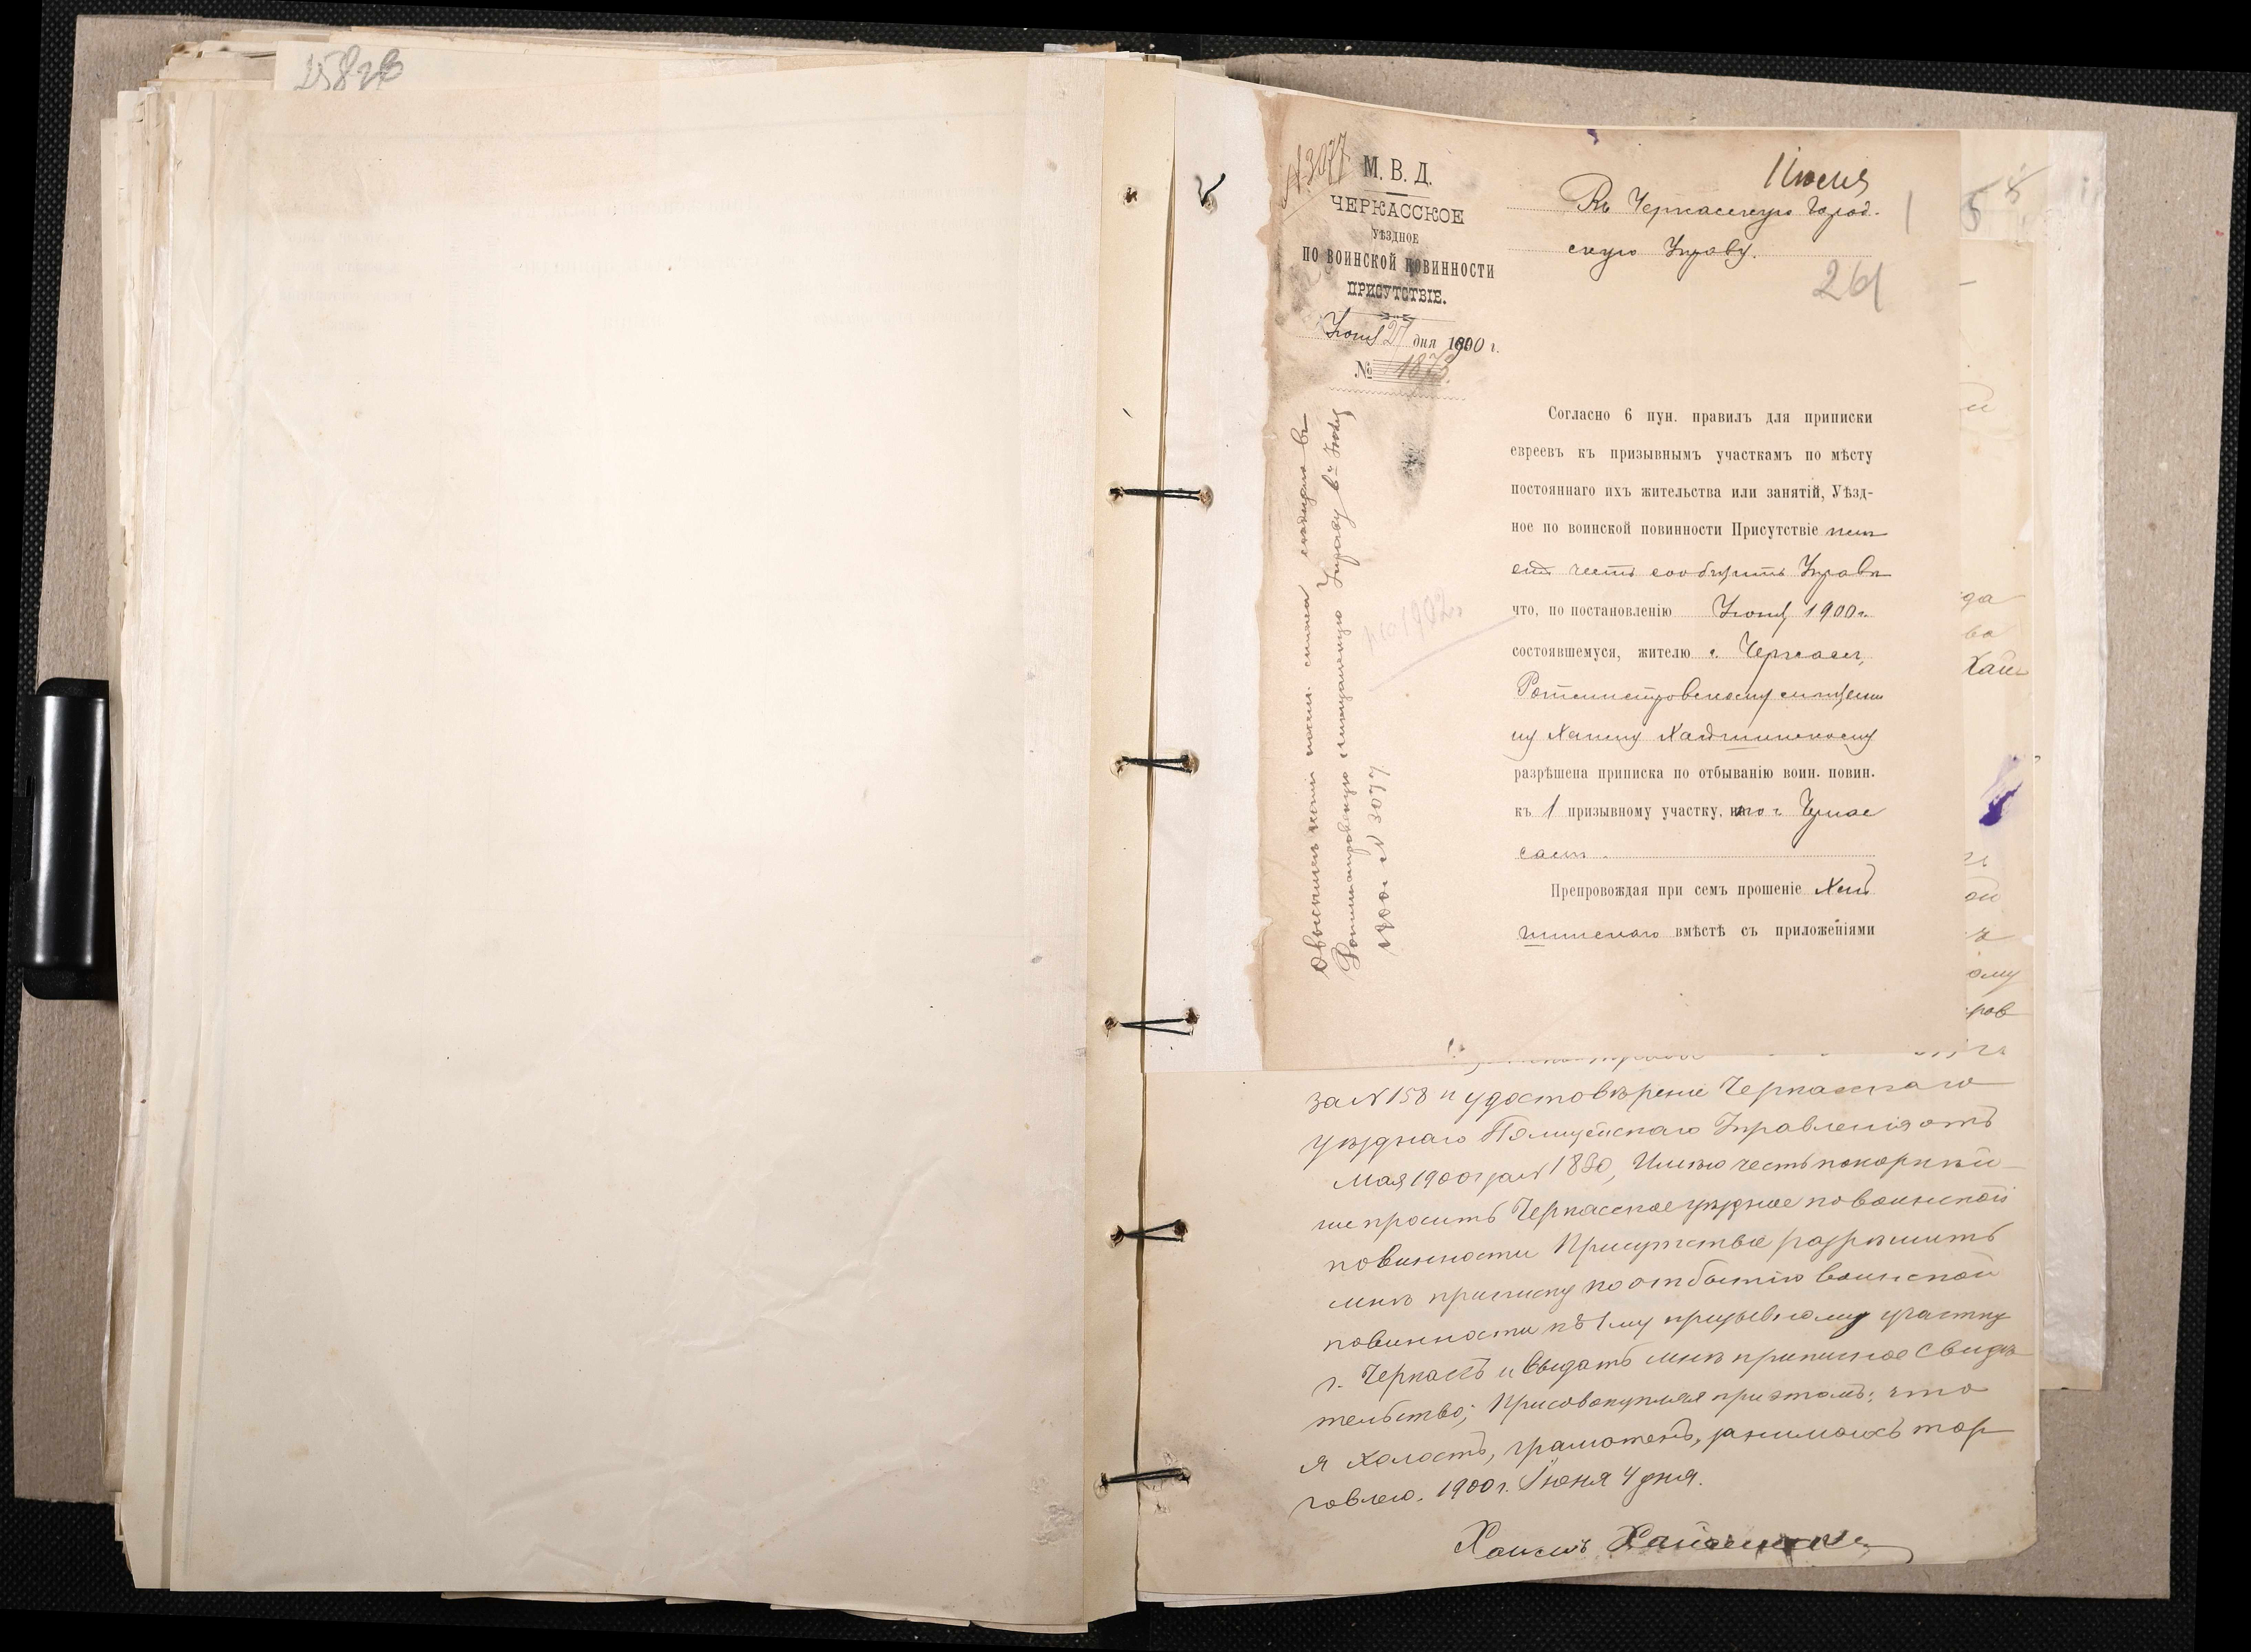 2582б
№ 3077
М. В. Д.
ЧЕРКАССКОЕ
УѢЗДНОЕ
ПО ВОИНСКОЙ ПОВИННОСТИ
ПРИСУТСТВІЕ.
Іюня 27 дня 1900 г.
№ 1873.
1 Июля
Въ Черкасскую Город-
скую Управу.
261
Согласно 6 пун. правилъ для приписки
евреевъ къ призывнымъ участкамъ по мѣсту
постояннаго ихъ жительства или занятій, Уѣзд-
ное по воинской повинности Присутствіе имѣ
етъ честь сообщить Управѣ
что, по постановленію Іюня 1900 г.
состоявшемуся, жителю г. Черкассъ,
Ротмистровскому мѣщани
ну Хаиму
разрѣшена приписка по отбыванію воин. повин.
къ 1 призывному участку, по г. Черкас
самъ.
Препровождая при семъ прошеніе
вмѣстѣ съ приложеніями
Ротмистровскую мѣщанскую Управу
1900 г. № 3077
на 1902 г.
за № 158 и удостовѣреніе Черкасскаго
уѣзднаго Полицейскаго Управленія отъ
Мая 1900 г за № 1830, Имѣю честь покорнѣй-
ше просить Черкасское уѣздное по воинской
повинности Присутствіе разрѣшить
мнѣ приписку по отбытію воинской
повинности къ 1му призывному участку
г. Черкассъ и выдать мнѣ приписное Свидѣ
тельство; Присовокупляя при этомъ: что
я холостъ, грамотенъ, занимаюсь тор
говлею. 1900 г. Іюня 4 дня.
Хаимъ